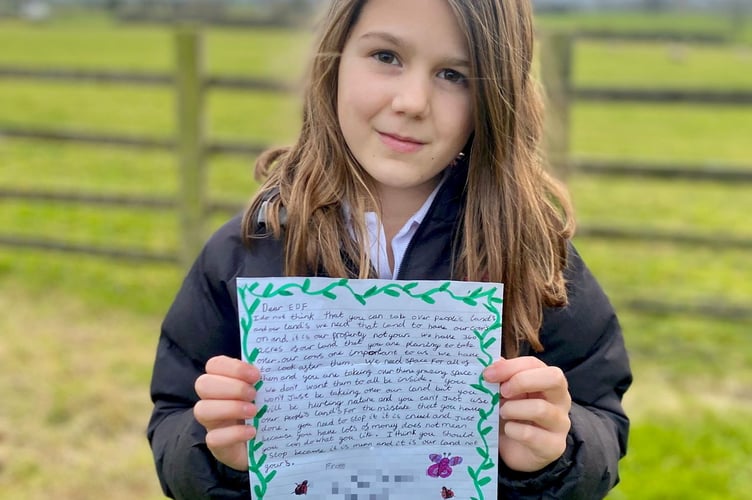 Dear EDF
I do not think that you can take over people's land's
and our land's we need that land to have our cows
on and it is our property not yours. We have 360
acres of our land that you are planing on taking
over. our cows are important to us we have
to look after them. We need space for all of
them and you are taking our there grazing space.
We don't want them to all be inside. You
won't just be taking over our land but you
will be hurting nature and you can't just use
our people's land's for the mistake that you have
done. you need to stop it it is cruel and just
because you have lots of money does not mean
you can do what you like. I think you should
stop because it is mean and it is our land not
yours.
From